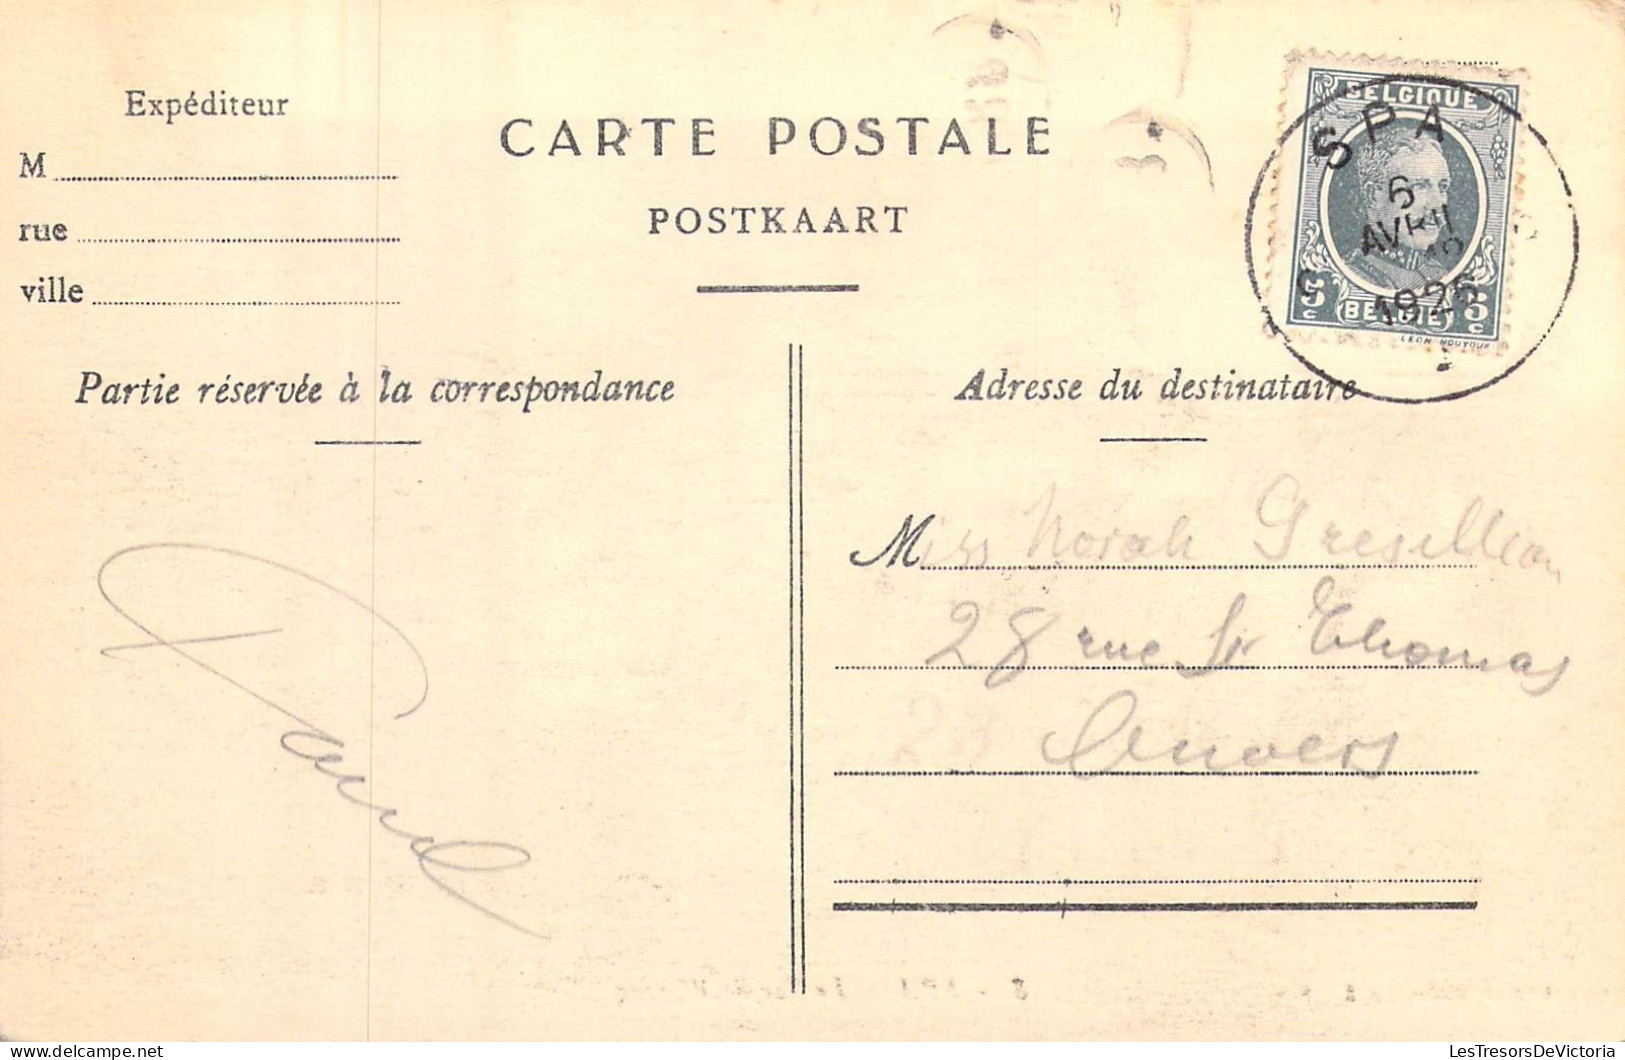 Expéditeur
M
rue
ville
CARTE POSTALE
POSTKAART
BELGIQUE
SPA
6
AVRIL
1926
5 c BELGIE 5 c
LEON HOUYOUX
Partie réservée à la correspondance
Adresse du destinataire
Miss Norah Gresillion
28 rue St Thomas
Anvers
Paul
LesTresorsDeVictoria